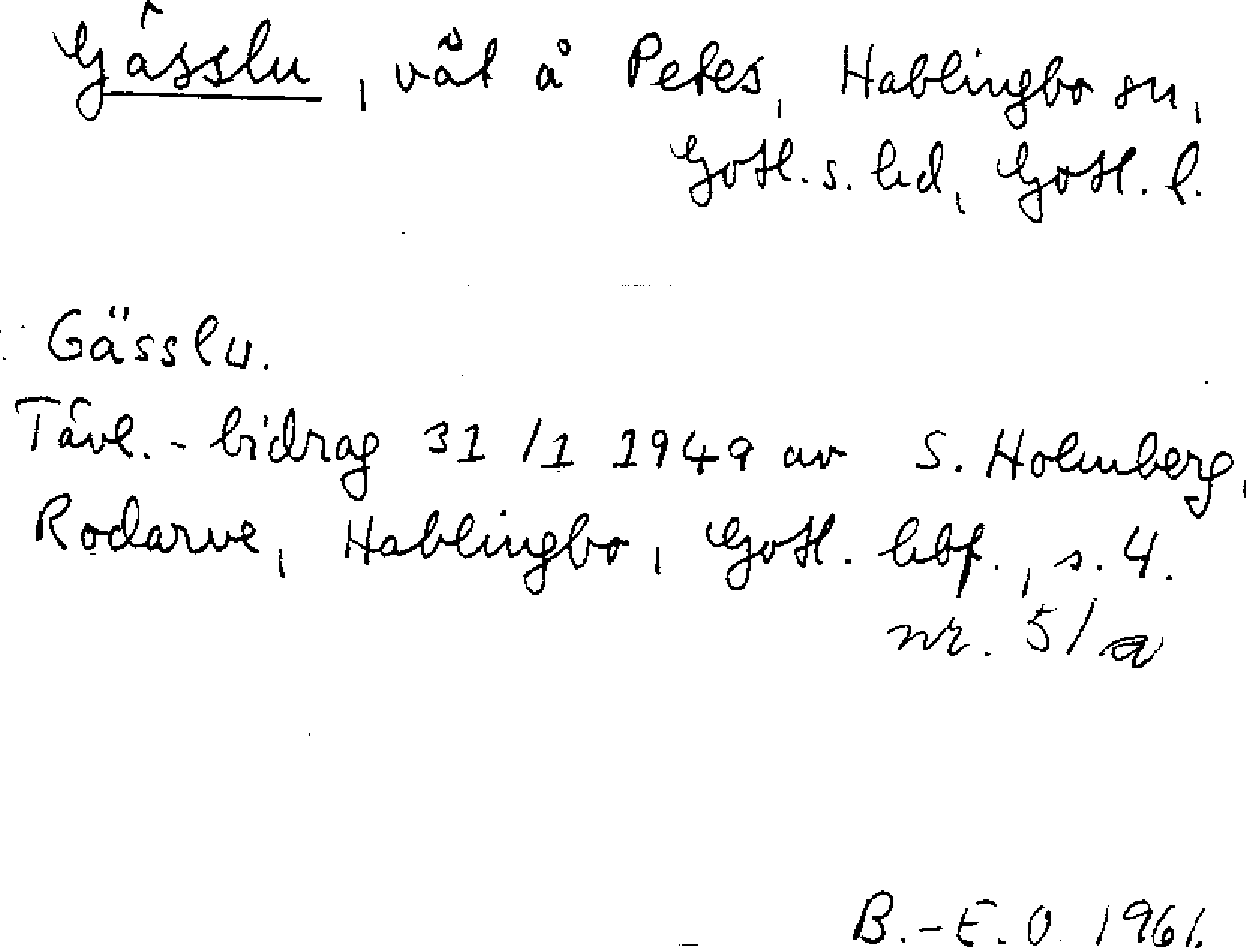 Gässlu, vät å Petes, Hablingbo sn,
Gotl. s. hd, Gotl. l.
Gässlu.
Tävl. - bidrag 31/1 1949 av S. Holmberg,
Rodarve, Hablingbo, Gotl. hbf., s. 4.
nr. 5/a
B.-E. O. 1961.